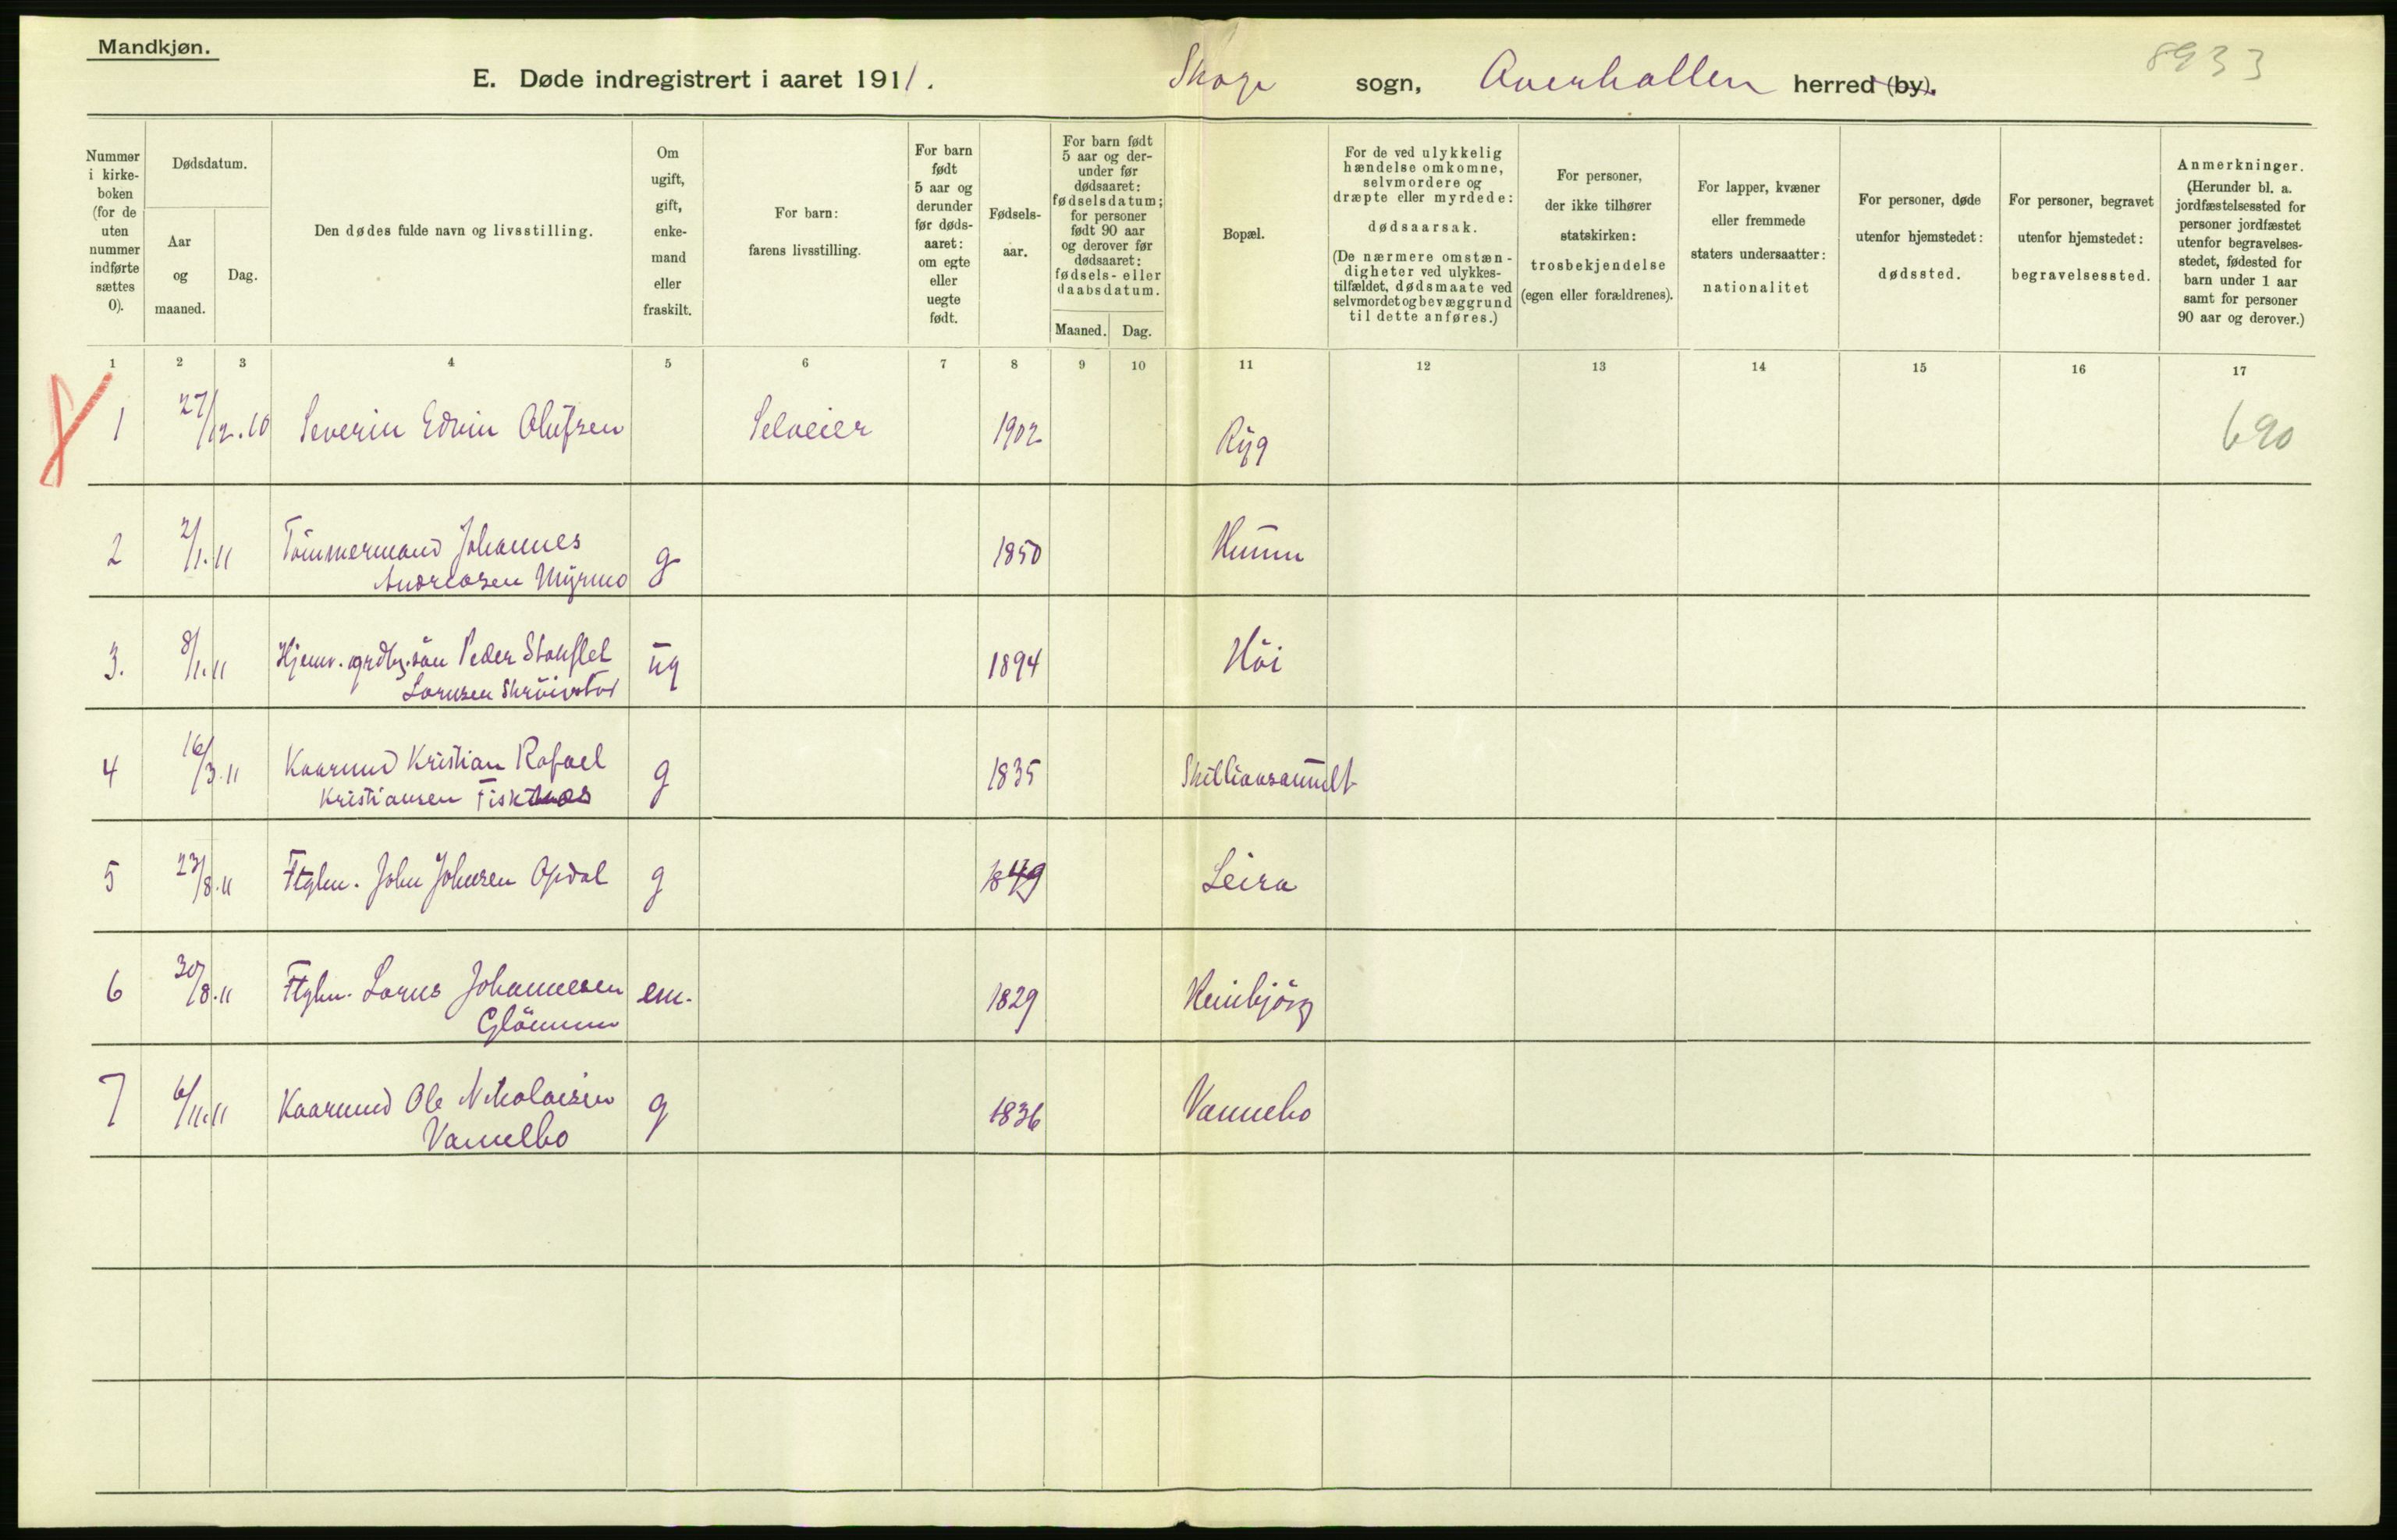 Mandkjøn.
8933
E. Døde indregistrert i aaret 1911. Skage sogn, Overhallen herred (by).
Nummer i kirke- boken (for de uten nummer indførte sættes 0).
Dødsdatum.
Aar og maaned.
Dag.
Den dødes fulde navn og livsstilling.
Om ugift, gift, enke- mand eller fraskilt.
For barn: farens livsstilling.
For barn født 5 aar og derunder før døds- aaret: om egte eller uegte født.
Fødsels- aar.
For barn født 5 aar og der- under før dødsaaret: fødselsdatum; for personer født 90 aar og derover før dødsaaret: fødsels- eller daabsdatum.
Maaned. Dag.
Bopæl.
For de ved ulykkelig hændelse omkomne, selvmordere og dræpte eller myrdede: dødsaarsak. (De nærmere omstæn- digheter ved ulykkes- tilfældet, dødsmaate ved selvmordet og bevæggrund til dette anføres.)
For personer, der ikke tilhører statskirken: trosbekjendelse (egen eller forældrenes).
For lapper, kvæner eller fremmede staters undersaatter: nationalitet
For personer, døde utenfor hjemstedet: dødssted.
For personer, begravet utenfor hjemstedet: begravelsessted.
Anmerkninger. (Herunder bl. a. jordfæstelsessted for personer jordfæstet utenfor begravelses- stedet, fødested for barn under 1 aar samt for personer 90 aar og derover.)
1 2 3 4 5 6 7 8 9 10 11 12 13 14 15 16 17
1 27/12.10 Severin Edvin Olufsen Selveier 1902 Ryg 690
2 2/1.11 Tömmermand Johannes
Andreasen Myrmo g 1850 Hunn
3. 8/1.11 Hjemv. grdbr.sön Peder Stouflet
Lornsen ug 1894 Höi
4 16/3.11 Kaarmd Kristian Rafael
Kristiansen g 1835
5 23/8.11 Ftghm. John Johnsen Opdal g 1849 Leira
6 30/8.11 Ftghm. Lorns Johannesen
Glömmen em. 1829
7 6/11.11 Kaarmd Ole Nikolaisen
Vannebo g 1836 Vannebo